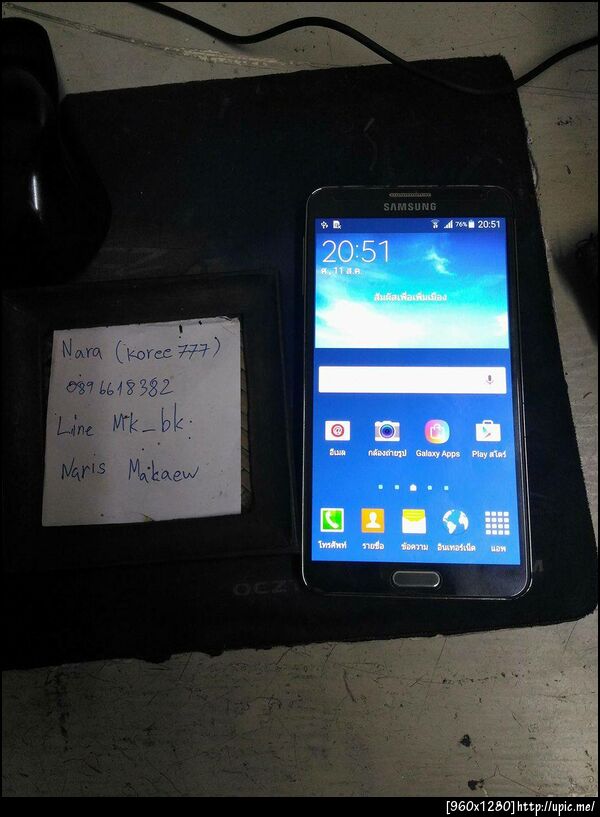 Nara (koree 777)
0896618382
Line Mk_bk.
Naris Makaew
SAMSUNG
76% 20:51
20:51
ศ., 11 ส.ค.
สัมผัสเพื่อเพิ่มเมือง
อีเมล กล้องถ่ายรูป Galaxy Apps Play สโตร์
โทรศัพท์ รายชื่อ ข้อความ อินเทอร์เน็ต แอพ
OCZ
[960x1280]http://upic.me/